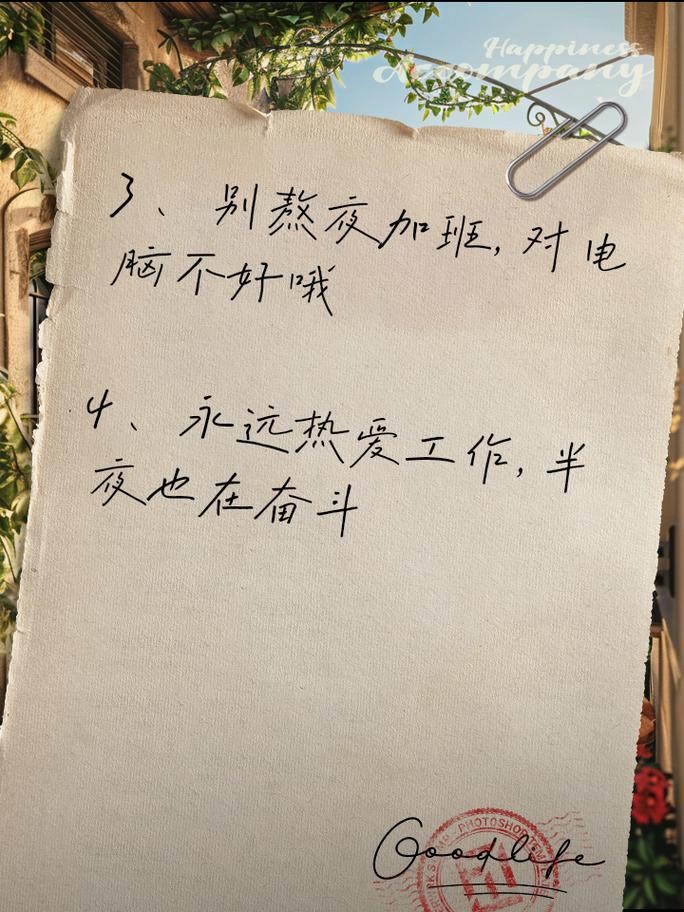 Happiness
Accompany
3、别熬夜加班,对电
脑不好哦
4、永远热爱工作,半
夜也在奋斗
PHOTOSHOP
Goodlife